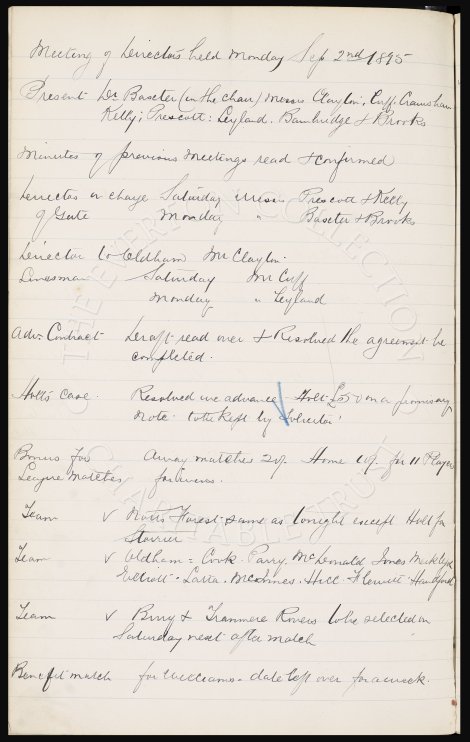 Meeting of Directors held Monday Sep 2nd 1895
Present Dr Baxter (in the chair) Messrs Clayton; Cuff; Cranshaw
Kelly; Prescott: Leyland. Bainbridge & Brooks
Minutes of previous Meetings read & confirmed
Director in charge Saturday Messrs Prescott & Kelly
of Gate Monday " Baxter & Brooks
Director to Oldham Mr Clayton.
Linesman Saturday Mr Cuff
Monday " Leyland
Adv. Contract Draft read over & Resolved the agreement be
completed.
Holt's case. Resolved we advance Holt £50 on a promissory
note to be kept by Director
Bonus for Away matches 20/- Home 10/- for 11 Players
League Matches for wins.
Team v Notts Forest same as tonight except Holt for
Storrier
Team v Oldham = Cook Parry. McDonald Jones Meiklejo
Elliott. Latta. McInnes. Hill Flewitt Handford
Team v Bury & Tranmere Rovers to be selected on
Saturday next after match
Benefit match for Williams - date left over for a week.
THE EVERTON COLLECTION
CHARITABLE TRUST